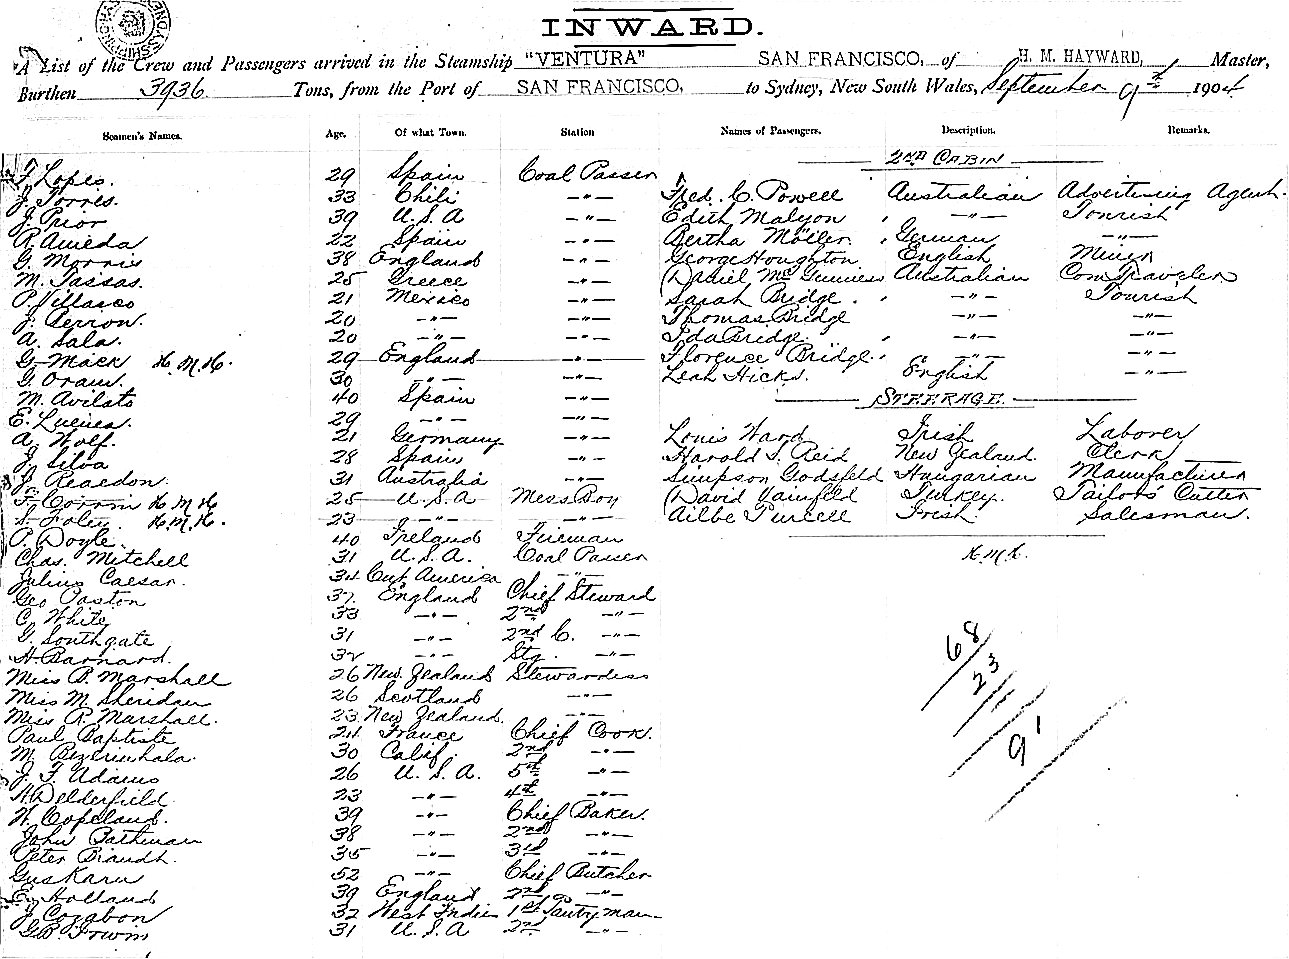 INWARD.
A List of the Crew and Passengers arrived in the Steamship "VENTURA" SAN FRANCISCO, of H. M. HAYWARD, Master,
Burthen 3936 Tons, from the Port of SAN FRANCISCO, to Sydney, New South Wales, September 9th 1904
Seamen's Names. Age. Of what Town. Station Names of Passengers. Description. Remarks.
2ND CABIN
F. Lopes. 29 Spain Coal Passer
J. Torres. 33 Chili -"-
J. Prior 39 U.S.A -"-
R. Amieda 22 Spain -"-
G. Morris 38 England -"-
M. Tassas. 25 Greece -"-
P. Villasco 21 Mexico -"-
J. Serron. 20 -"- -"-
A. Sala. 20 -"- -"-
G. Mack H.M.H. 29 England -"-
G. Oram. 30 -"- -"-
M. Avilato 40 Spain -"-
E. 29 -"- -"-
A. Wolf. 21 Germany -"-
J. Silva 28 Spain -"-
J. Reardon. 31 Australia -"-
F. Corrin H.M.H 25 U.S.A Mess Boy
S. Foley. H.M.H. 23 -"- -"-
P. Doyle. 40 Ireland Fireman
Chas. Mitchell 31 U.S.A. Coal Passer
Julius Caesar. 34 Cent America -"-
Geo Paston 37 England Chief Steward
C. White 33 -"- 2nd -"-
G. Southgate 31 -"- 2nd C. -"-
H. Barnard. 32 -"- Stg. -"-
Miss B. Marshall 26 New Zealand Stewardess
Miss M. Sheridan 26 Scotland -"-
Miss R. Marshall. 23 New Zealand. -"-
Paul Baptiste 24 France Chief Cook.
M. 30 Calif. 2nd -"-
J. F. Adams 26 U.S.A. 5th -"-
H. Delderfield 23 -"- 4th -"-
W. Copeland. 39 -"- Chief Baker.
John Pathman 38 -"- 2nd -"-
Peter Biandh. 35 -"- 3rd -"-
Gus Karu 52 -"- Chief Butcher
E. Holland 39 England 2nd do -"-
J. Cozabon 32 West Indies 1st Pantryman
G.B. Irwin 31 U.S.A 2nd -"-
Fred. C. Powell Australian Advertising Agent.
Edith Malyon -"- Tourist
Bertha Möller. German -"-
George Houghton English Miner
Daniel McGuiness Australian Com Traveler
Sarah Bridge. -"- Tourist
Thomas Bridge -"-
Ida Bridge -"- -"-
Florence Bridge. -"- -"-
Leah Hicks. English -"-
STEERAGE.
Louis Ward Irish Laborer
Harold S. Reid New Zealand. Clerk
Simpson Godsfeld Hungarian Manufacturer
David Turkey. Tailors Cutter
Ailbe Purcell Irish. Salesman.
H.M.H.
68
23
91